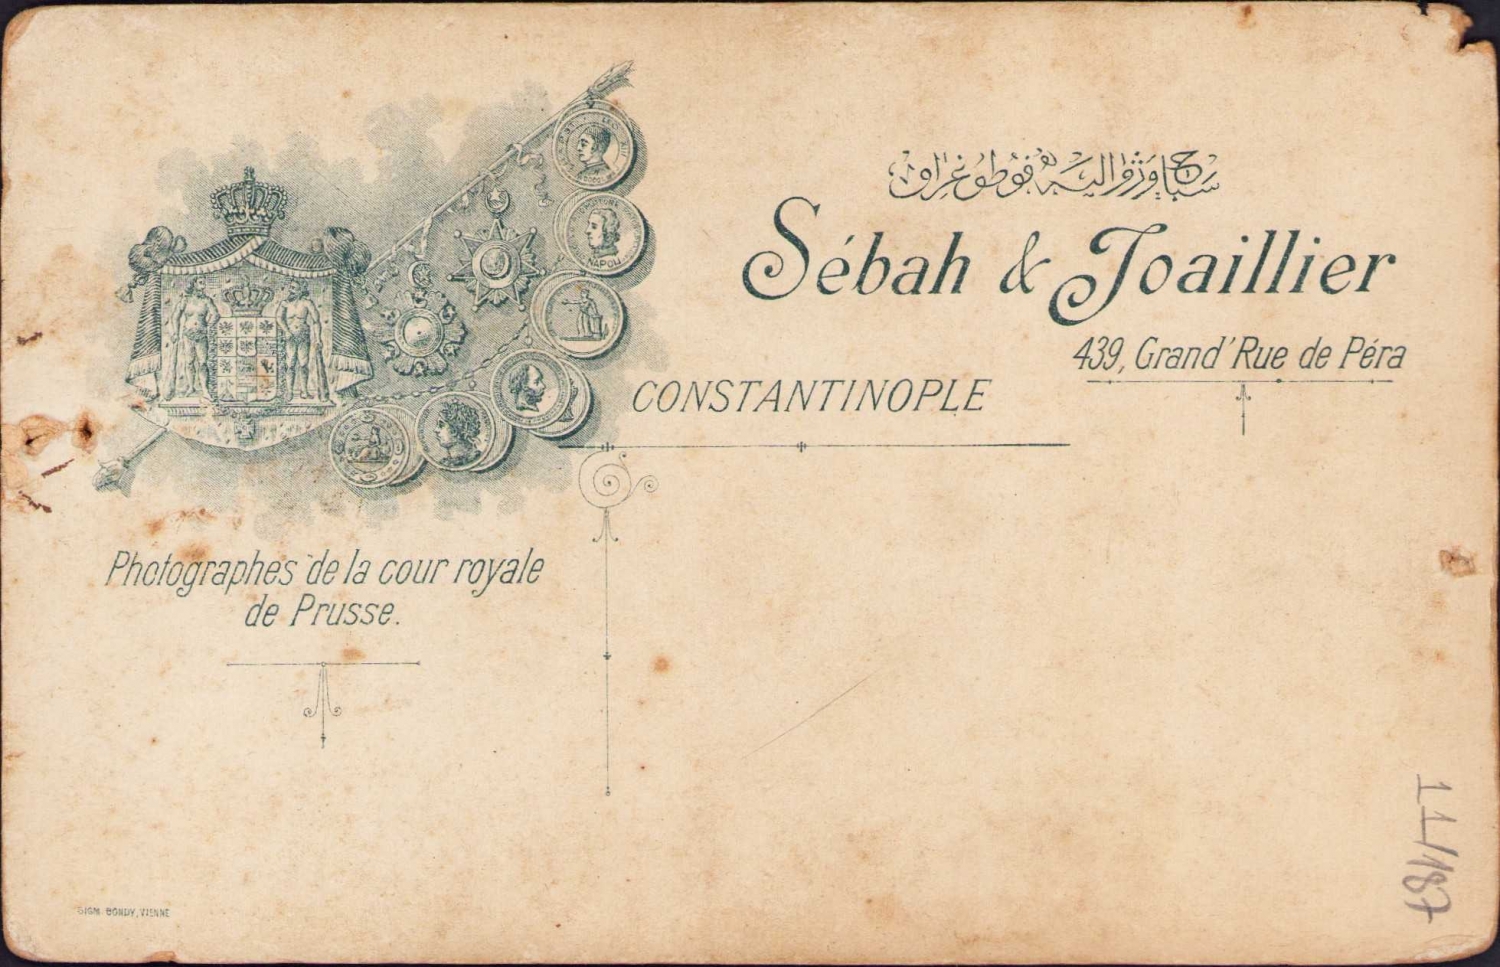 سباح وژوالیه فوطوغرافی
Sébah & Joaillier
439, Grand'Rue de Péra
CONSTANTINOPLE
Photographes de la cour royale
de Prusse.
NAPOLI
SIGM. BONDY, VIENNE
11/187